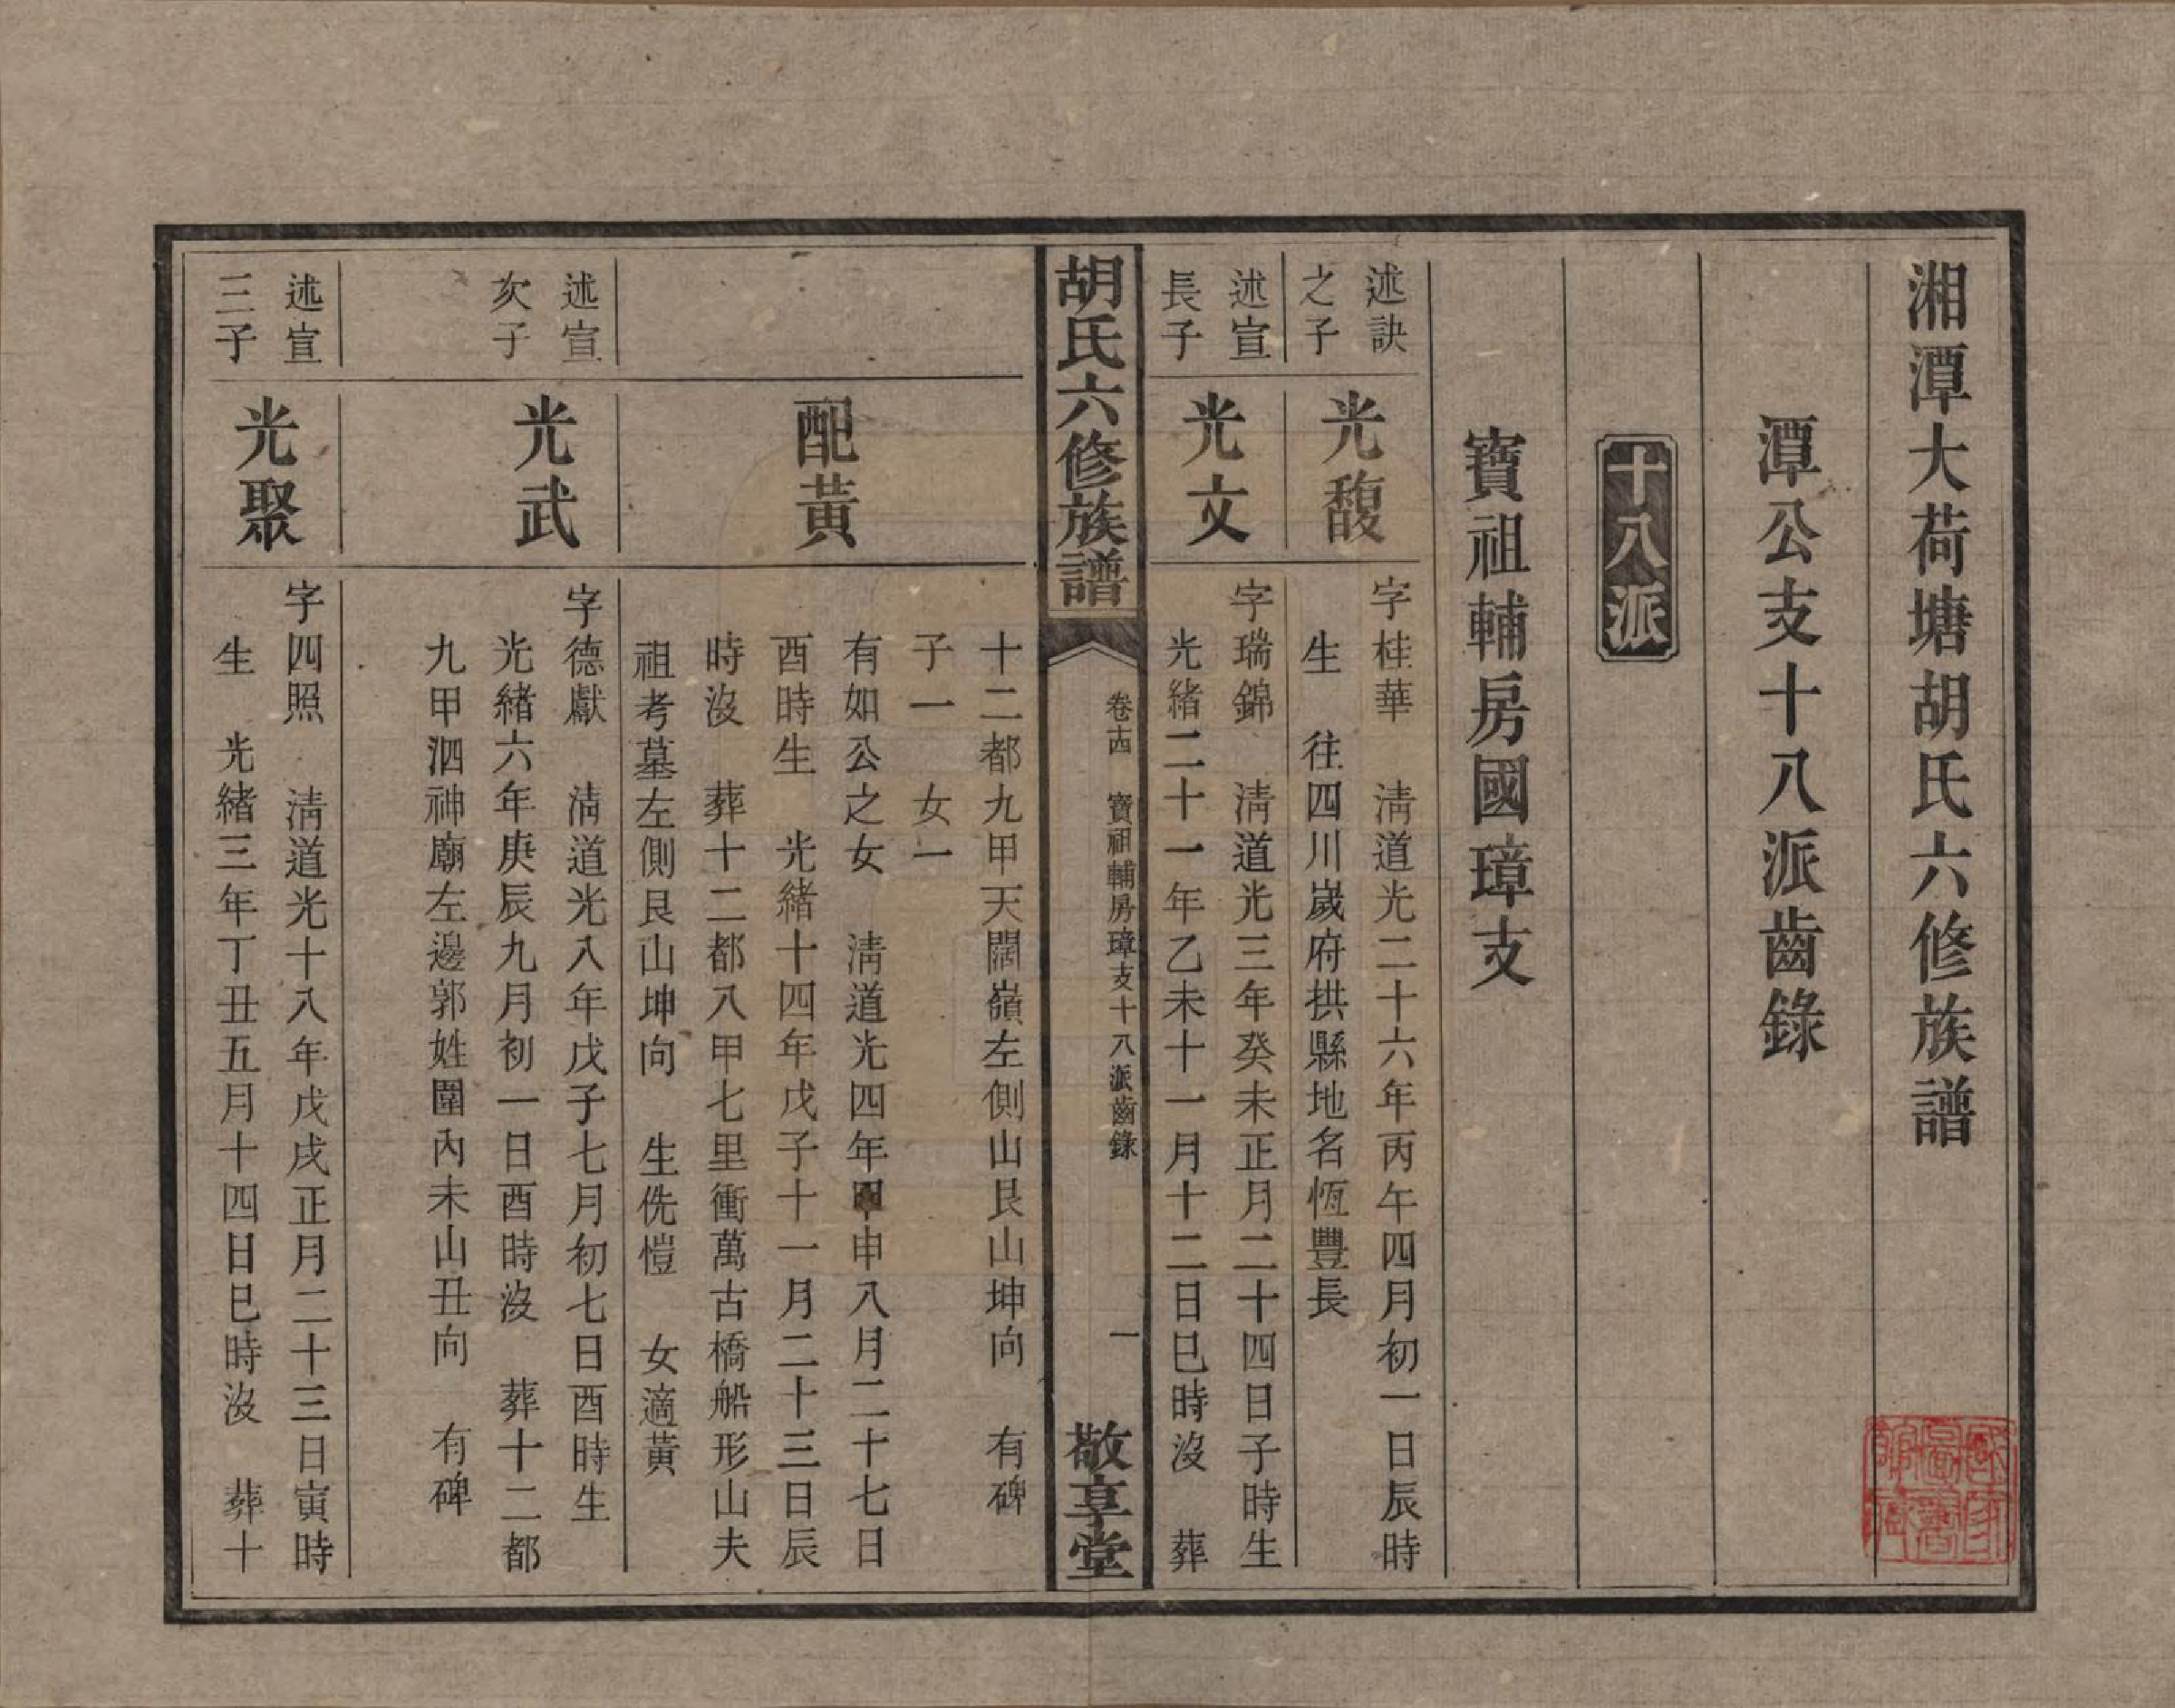 湘潭大荷塘胡氏六修族譜
潭公支十八派齒錄
十八派
寶祖輔房國璋支
述訣
之子
光馥
字桂華　淸道光二十六年丙午四月初一日辰時
生　往四川嵗府拱縣地名恆豐長
述宣
長子
光文
字瑞錦　淸道光三年癸未正月二十四日子時生
光緒二十一年乙未十一月十二日巳時沒　葬
胡氏六修族譜
卷十四　寶祖輔房璋支十八派齒錄
一
敬享堂
十二都九甲天闊嶺左側山艮山坤向　有碑
子一　女一
配黃
有如公之女　淸道光四年甲申八月二十七日
酉時生　光緒十四年戊子十一月二十三日辰
時沒　葬十二都八甲七里衝萬古橋船形山夫
祖考墓左側艮山坤向　生侁愷　女適黃
述宣
次子
光武
字德獻　淸道光八年戊子七月初七日酉時生
光緒六年庚辰九月初一日酉時沒　葬十二都
九甲泗神廟左邊郭姓圍內未山丑向　有碑
述宣
三子
光聚
字四照　淸道光十八年戊戌正月二十三日寅時
生　光緒三年丁丑五月十四日巳時沒　葬十